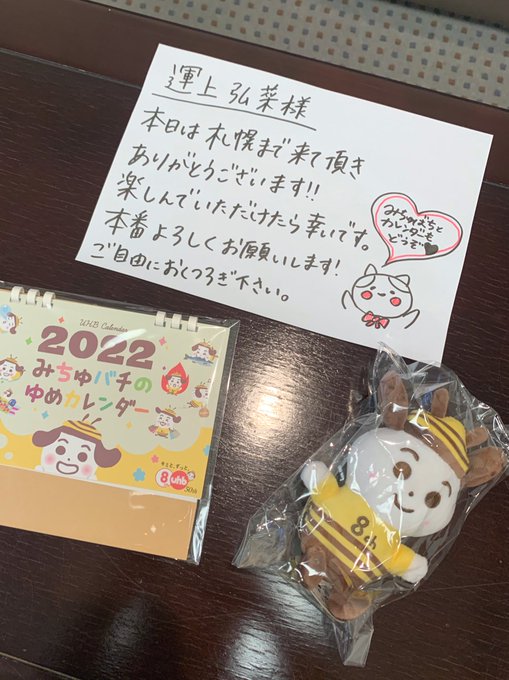 運上弘菜様
本日は札幌まで来て頂き
ありがとうございます!!
楽しんでいただけたら幸いです。
本番よろしくお願いします!
ご自由におくつろぎ下さい。
みちゅばちと
カレンダーも
どうぞ♥
UHB Calendar
2022
みちゅバチの
ゆめカレンダー
キミと、ずっと。
8 uhb
50th
8ch